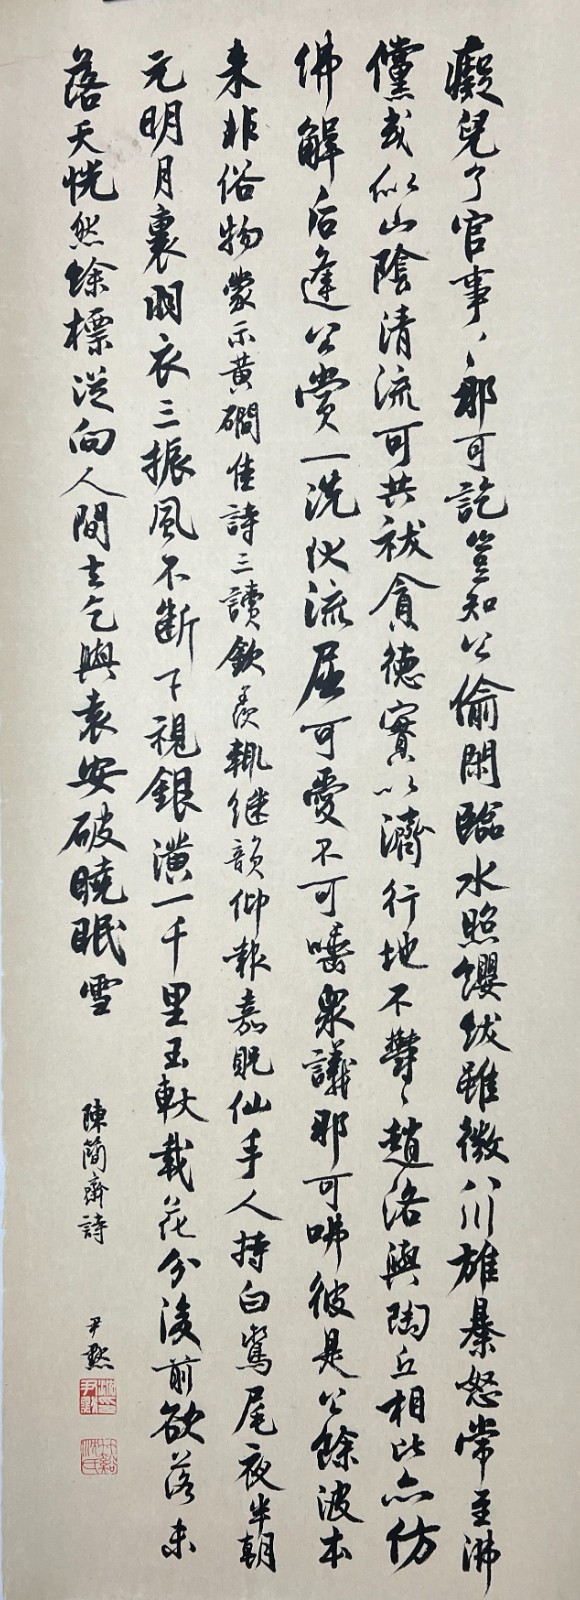 癡兒了官事々那可訖豈知公偷閑臨水照纓紱雖微八川雄暴怒常至沸
儻或似山陰清流可共祓貪德實以濟行地不鬱々趙洛與陶丘相比亦仿
佛解后逢公賞一洗伙流屈可愛不可唾眾議那可咈彼是公餘波本
來非俗物蒙示黃磵佳詩三讀欽羨輒继韻仰報嘉貺仙手人持白鸞尾夜半朝
元明月裏羽衣三振風不斷下視銀潢一千里玉軑載花分後前欲落未
落天恍然餘標從向人間去乞與袁安破曉眠雪
陳簡齋詩
尹默